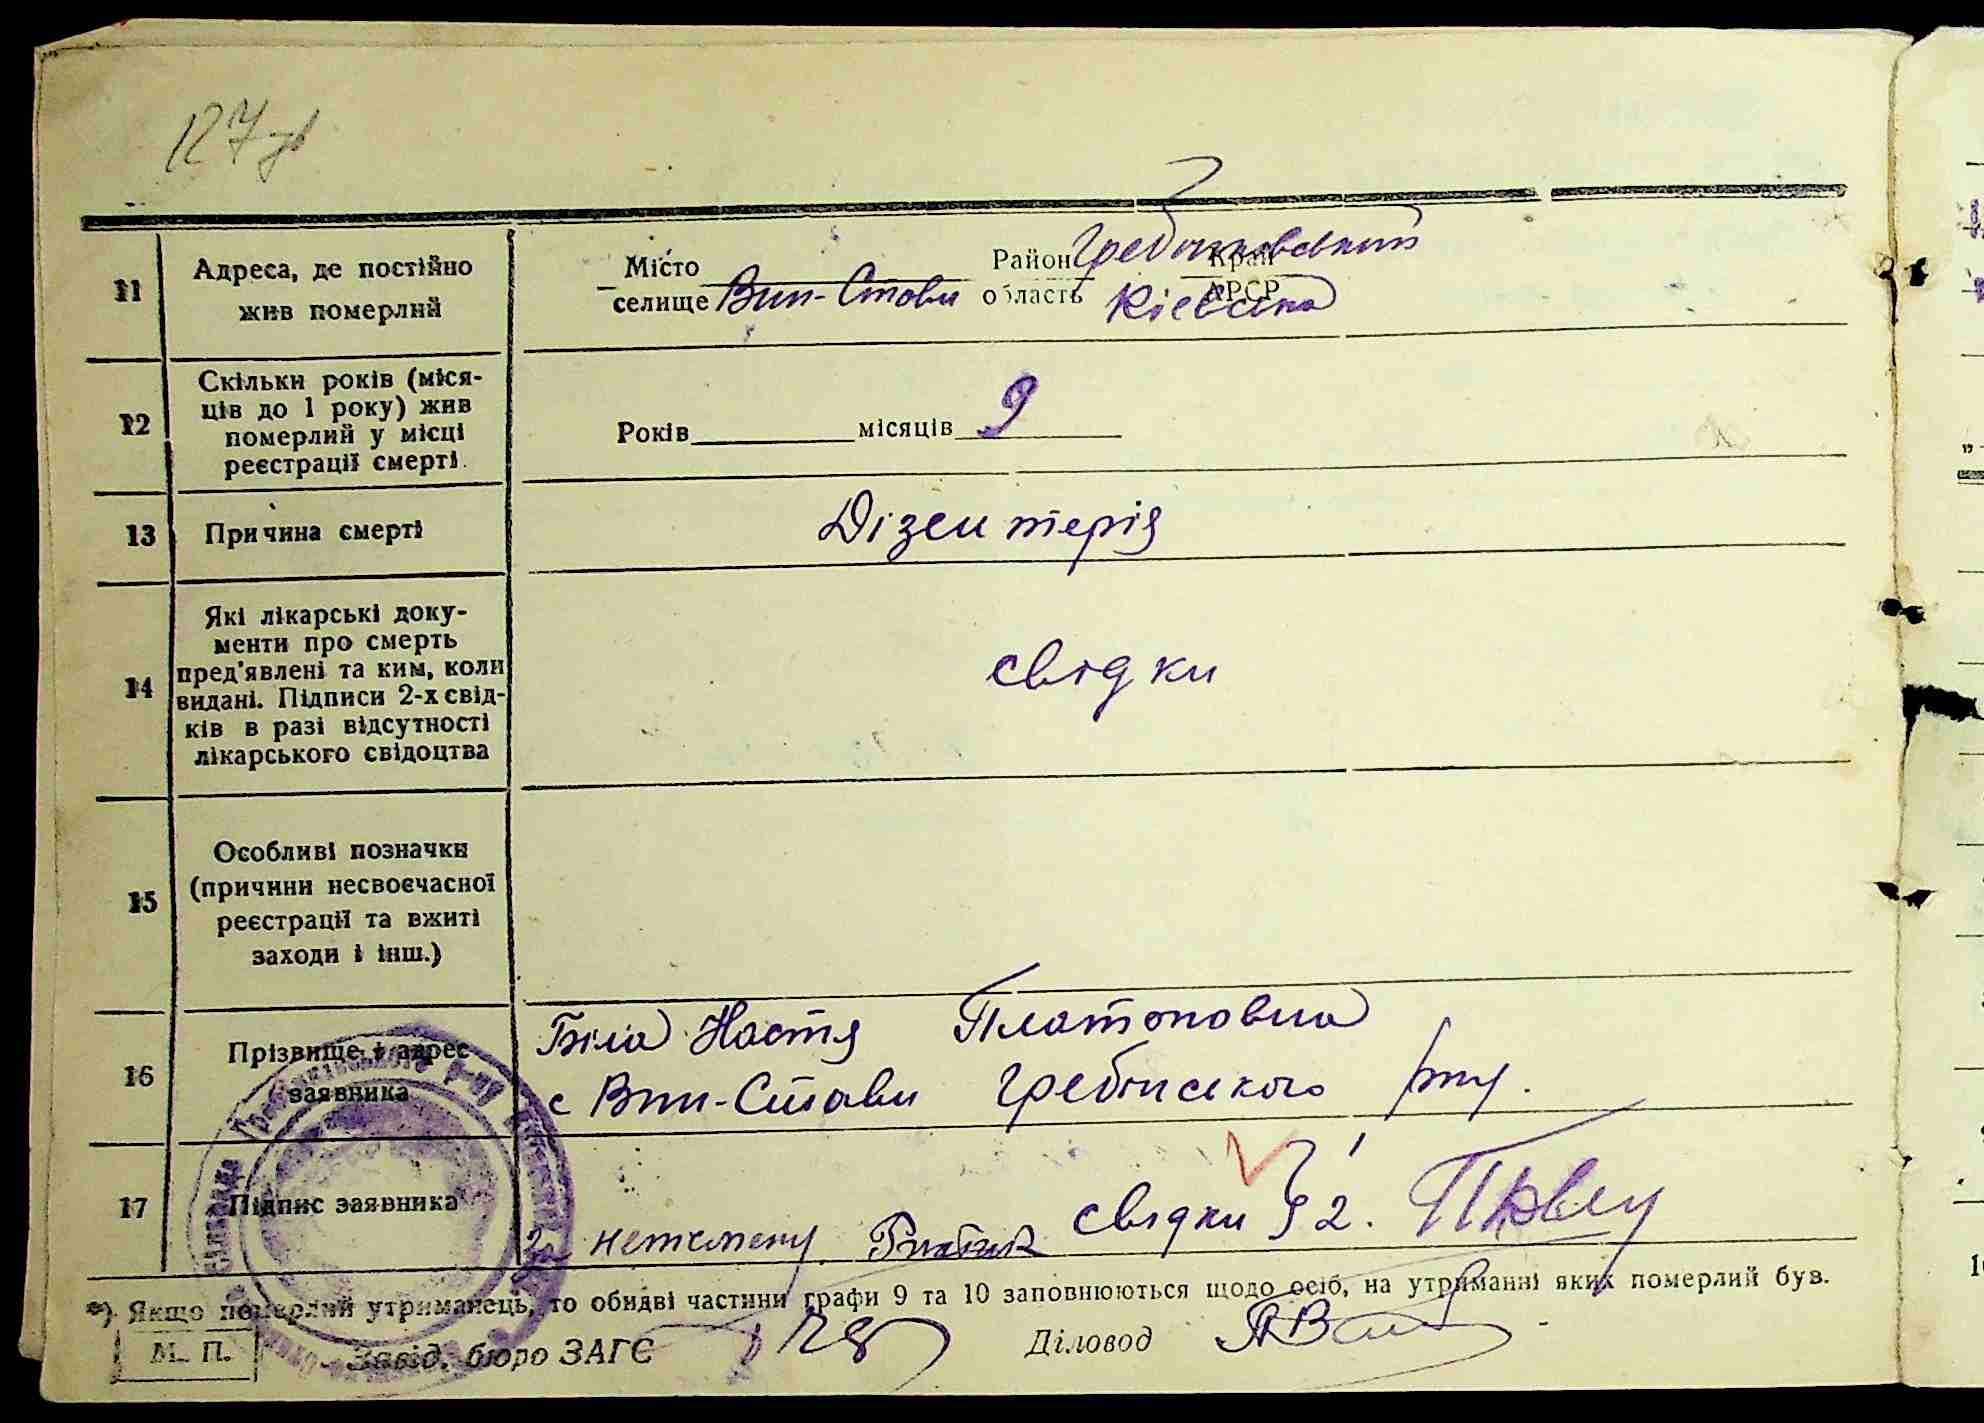 127
11
Адреса, де постійно
жив померлий
Місто Район Гребінковський Край
селище Вин-Стави область Кіевська АРСР
12
Скільки років (міся-
ців до 1 року) жив
померлий у місці
реєстрації смерті.
Років місяців 9
13
Причина смерті
Дізентерія
14
Які лікарські доку-
менти про смерть
пред'явлені та ким, коли
видані. Підписи 2-х свід-
ків в разі відсутності
лікарського свідоцтва
свідки
15
Особливі позначки
(причини несвоєчасної
реєстрації та вжиті
заходи і інш.)
16
Прізвище і адрес
заявника
Біла Настя Платоновна
с Вин-Стави Гребінського р-ну.
17
Підпис заявника
За неписмену свідки 1
2.
*) Якщо померлий утриманець, то обидві частини графи 9 та 10 заповнюються щодо осіб, на утриманні яких померлий був.
М. П.
Завід. бюро ЗАГС
Діловод